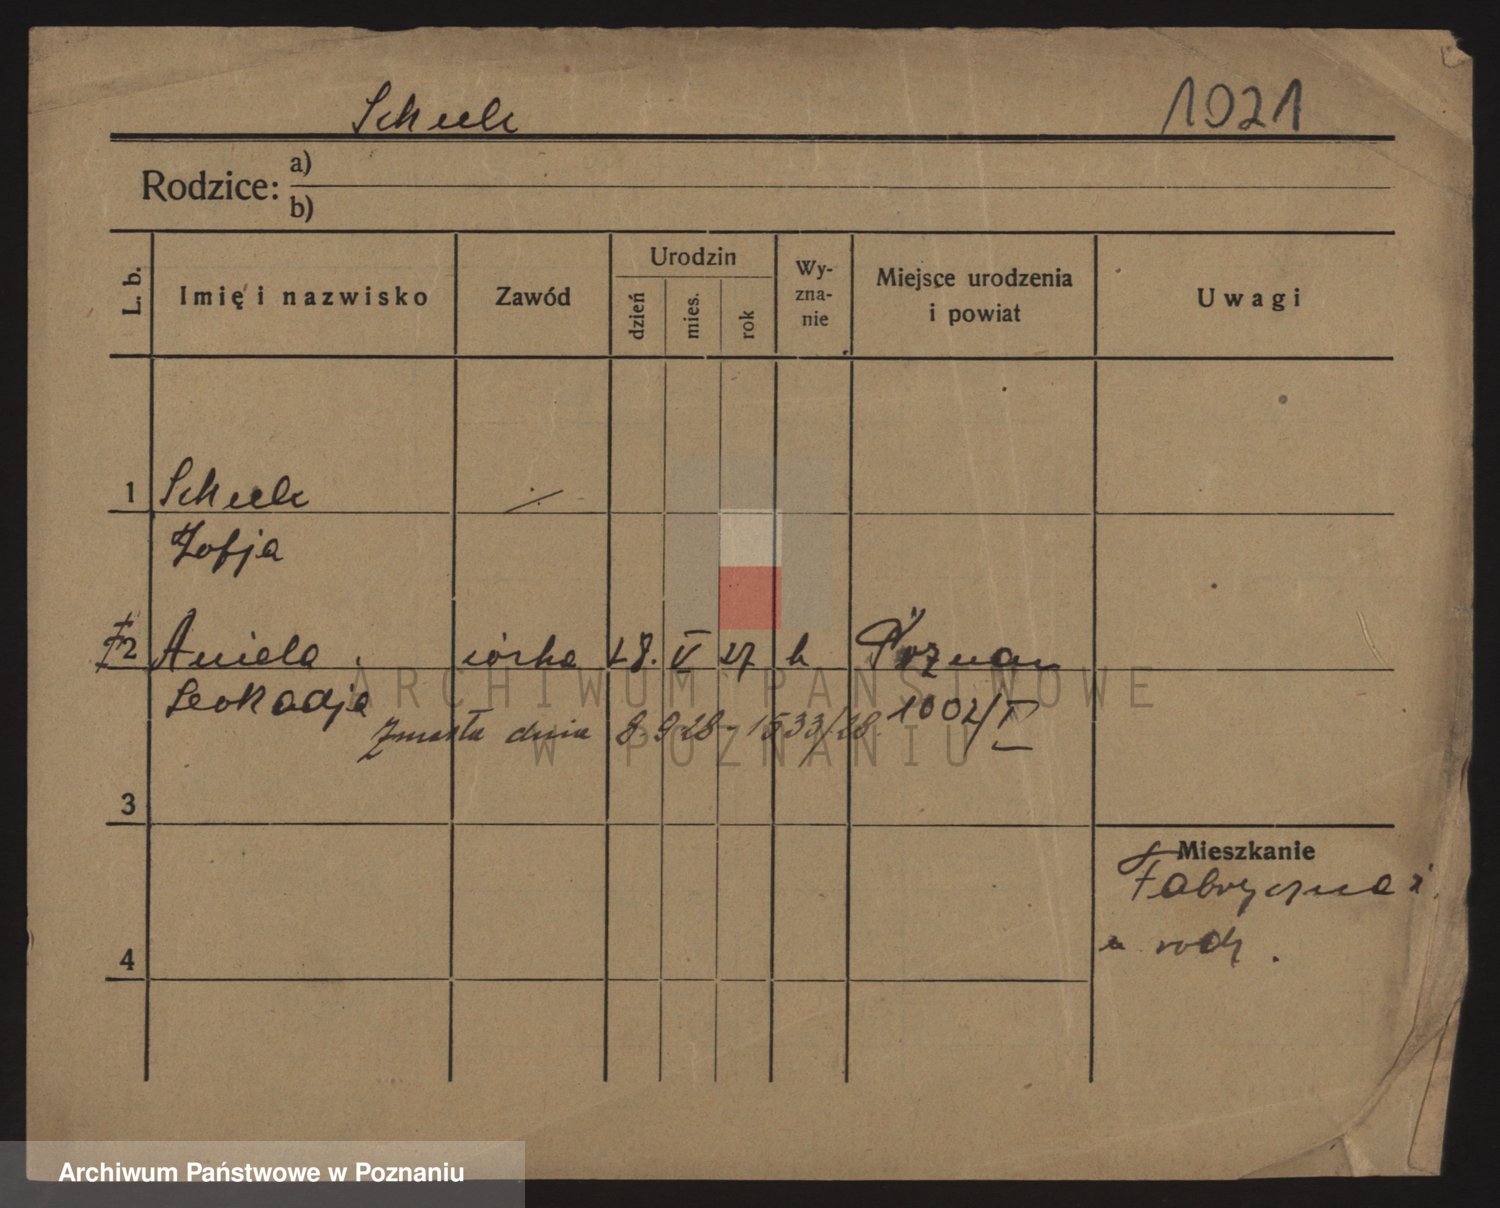 Schulz 1921
Rodzice: a)
b)
L. b. Imię i nazwisko Zawód Urodzin dzień mies. rok Wy-zna-nie Miejsce urodzenia i powiat Uwagi
1 Schulz
Zofja
2 Aniela córka 28. V 27 k Poznań
Leokadja 1002/II
Zmarła dnia 8-9-28 - 1533/28
3
Mieszkanie
Fabryczna
u rodz.
4
ARCHIWUM PAŃSTWOWE
W POZNANIU
Archiwum Państwowe w Poznaniu